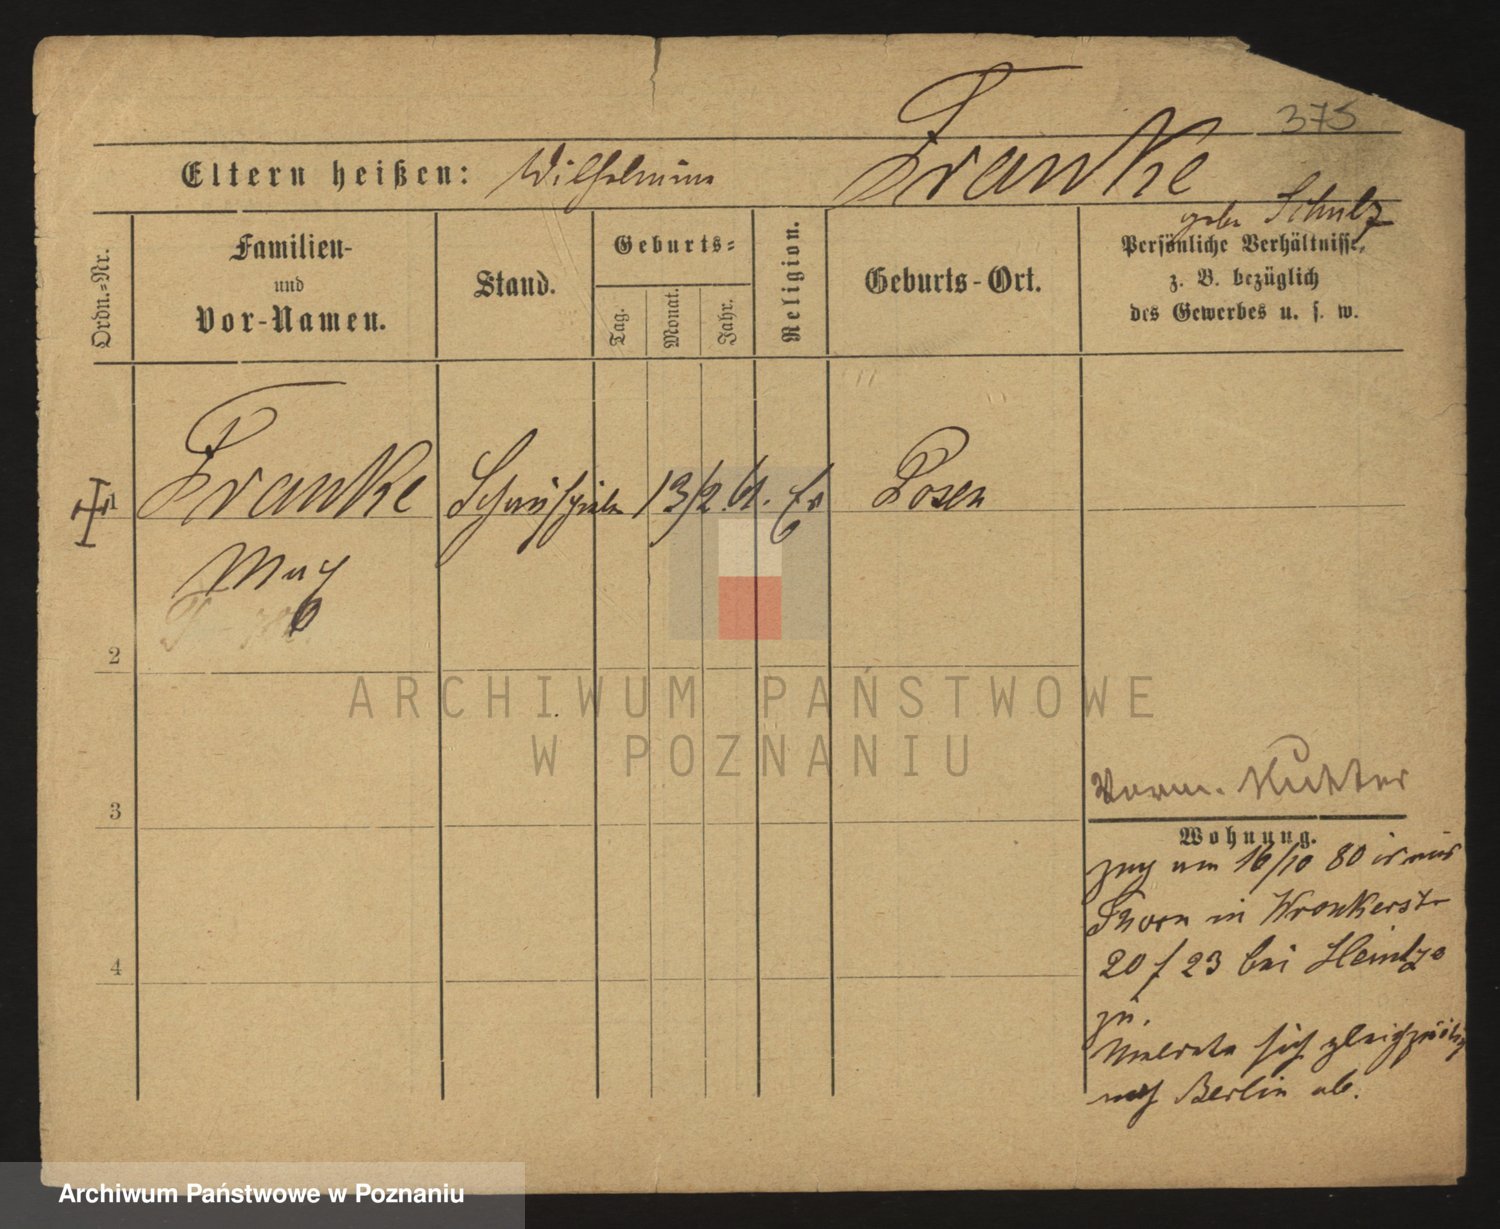 375
Eltern heißen: Wilhelmine Franke
geb. Schulz
Ordn.-Nr.
Familien-
und
Vor-Namen.
Stand.
Geburts-
Tag.
Monat.
Jahr.
Religion.
Geburts-Ort.
Persönliche Verhältnisse,
z. B. bezüglich
des Gewerbes u. s. w.
Franke Schauspieler 13/2 61. Ev Posen
Max
2
3
4
ARCHIWUM PAŃSTWOWE
W POZNANIU
Vorm. Mutter
Wohnung.
zog am 16/10 80 aus
Thorn in Wronkerstr
20/23 bei Heintze
zu.
Meldete sich gleichzeitig
nach Berlin ab.
Archiwum Państwowe w Poznaniu